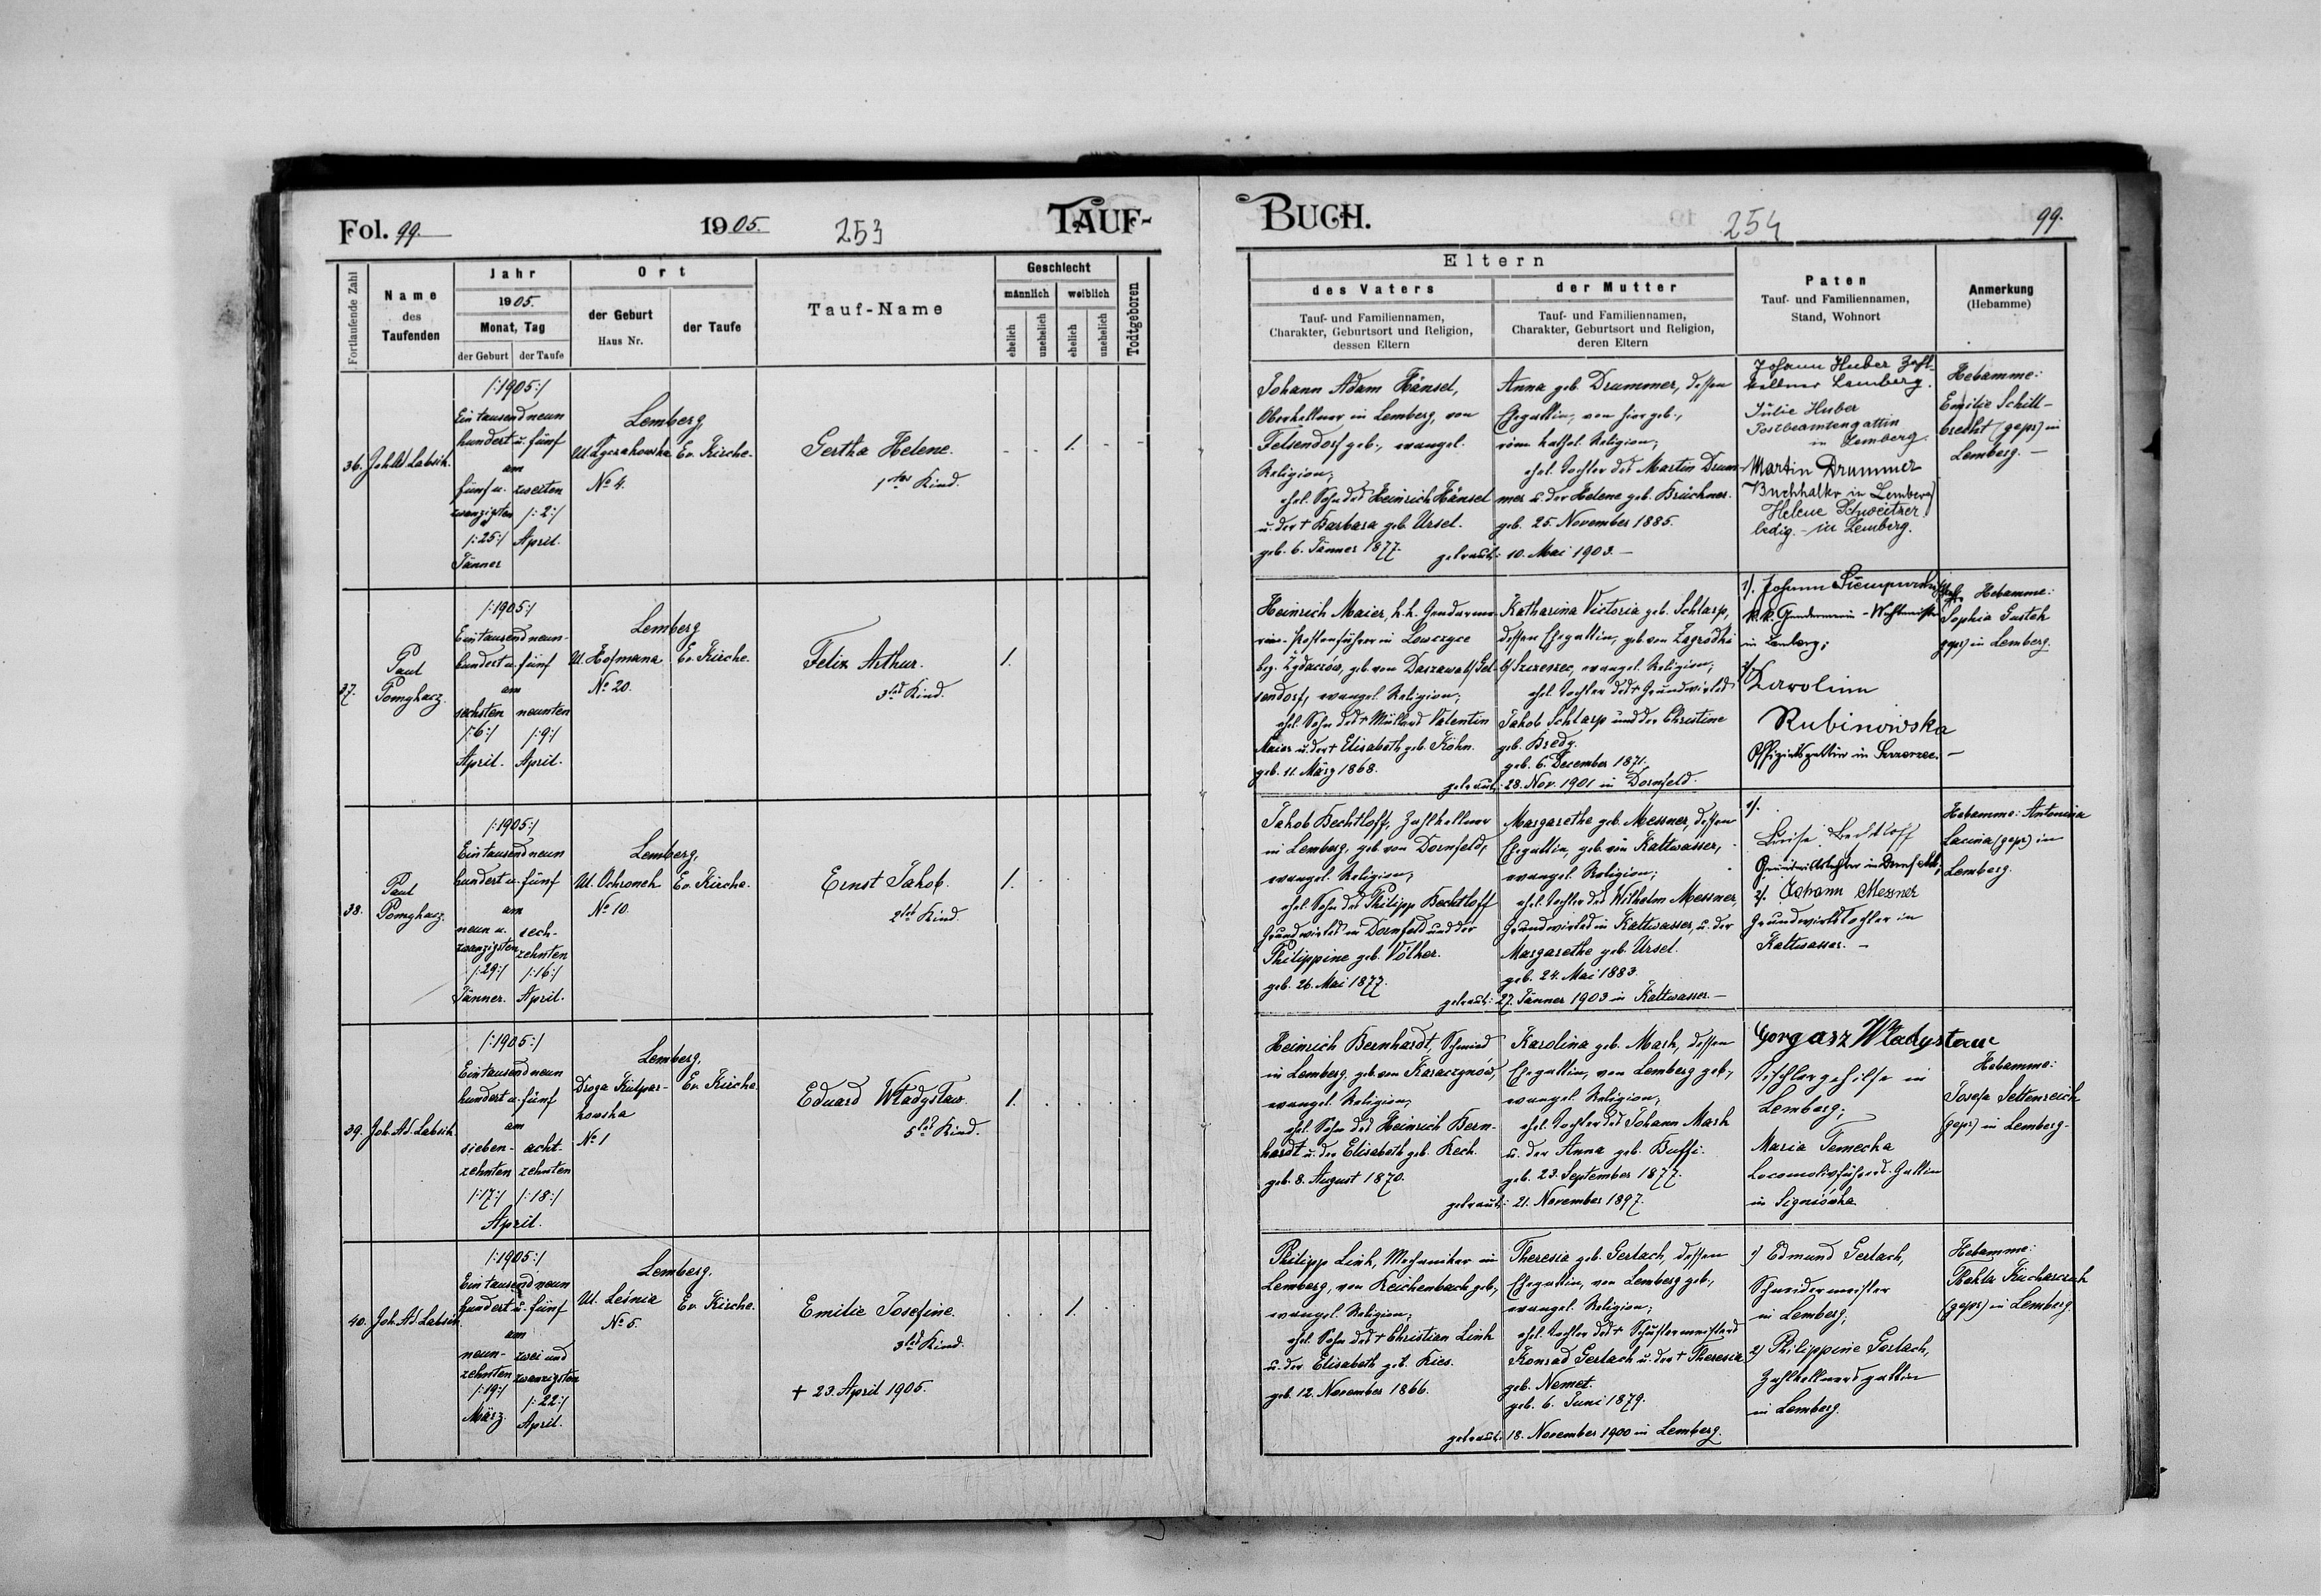 Fol. 99.
1905.
253
TAUF-
Fortlaufende Zahl
Name
des
Taufenden
Jahr
1905.
Monat, Tag
der Geburt
der Taufe
Ort
der Geburt
Haus Nr.
der Taufe
Tauf-Name
Geschlecht
männlich
weiblich
ehelich
unehelich
ehelich
unehelich
Todtgeboren
36.
/:1905:/
Ein tausend neun
hundert u. fünf
am
fünf u.
zwanzigsten
/:25:/
Jänner
zweiten
/:2:/
April.
Lemberg
No 4.
Ev. Kirche.
Gertha Helene.
1tes Kind.
- - 1. - -
37.
Paul
Pomykacz.
/:1905:/
Ein tausend neun-
hundert u. fünf
am
sechsten
/:6:/
April.
neunten
/:9:/
April.
Lemberg
Ul. Hofmana
No 20.
Ev. Kirche.
Felix Arthur.
3tes Kind.
1.
38.
Paul
Pomykacz.
/:1905:/
Ein tausend neun
hundert u. fünf
am
neun u.
zwanzigsten
/:29:/
Jänner.
sech-
zehnten
/:16:/
April.
Lemberg,
Ul. Ochronek
No 10.
Ev. Kirche.
Ernst Jakob.
2tes Kind.
1.
39. Joh. Ad. Labsik.
/:1905:/
Ein tausend neun
hundert u. fünf
am
sieben-
zehnten
/:17:/
acht-
zehnten
/:18:/
April.
Lemberg,
Droga Kulpar-
kowska
No 1
Ev. Kirche.
Eduard Władysław.
5tes Kind.
1.
40. Joh. Ad. Labsik.
/:1905:/
Ein tausend neun
hundert u. fünf
am
neun-
zehnten
/:19:/
März.
zwei und
zwanzigsten
/:22:/
April.
Lemberg.
Ul. Leśnia
No 5.
Ev. Kirche.
Emilie Josefine.
3tes Kind.
+ 23. April 1905.
1.
BUCH.
254
99.
Eltern
des Vaters
Tauf- und Familiennamen,
Charakter, Geburtsort und Religion,
dessen Eltern
der Mutter
Tauf- und Familiennamen,
Charakter, Geburtsort und Religion,
deren Eltern
Paten
Tauf- und Familiennamen,
Stand, Wohnort
Anmerkung
(Hebamme)
Johann Adam Hänsel,
Oberkellner in Lemberg, von
Felsendorf geb., evangel.
Religion;
ehel. Sohn des Heinrich Hänsel
u. der + Barbara geb. Ursel.
geb. 6. Jänner 1877.
Anna geb. Drummer, dessen
Ehegattin, von hier geb.,
röm. kathol. Religion;
ehel. Tochter des Martin Drum-
mer u. der Helene geb. Brückner.
geb. 25. November 1885.
getraut: 10. Mai 1903. -
Johann Huber Zahl-
kellner Lemberg.
Julie Huber
Postbeamtengattin
in Lemberg.
Martin Drummer
Buchhalter in Lemberg
Helene Schweitzer
ledig. - in Lemberg.
Hebamme:
Emilie Schill-
brecht (gepr) in
Lemberg. -
Heinrich Maier, k.k. Gendarme-
rie-Postenführer in Lowczyce
bez. Żydaczów, geb. von
evangel. Religion;
ehel. Sohn des + Müllers Valentin
Maier u. der + Elisabeth geb. Köhn.
geb. 11. März 1868.
Katharina Victoria geb. Schlarp,
dessen Ehegattin, geb. von Zagrodki
b/ Szczerzec, evangel. Religion;
ehel. Tochter des + Grundwirtes
Jakob Schlarp und der Christine
geb. Bredy.
geb. 6. December 1871.
getraut: 28. Nov. 1901 in Dornfeld.
1/. Johann
k.k. Gendarmerie-Wachtmeister
in Lemberg;
2/
Karolina
Rubinowska
Offizialsgattin in Szczerzec. -
Hebamme:
Sophia Gustek
gepr) in Lemberg.
Jakob Bechtloff, Zahlkellner
in Lemberg, geb. von Dornfeld,
evangel. Religion;
ehel. Sohn des Philipp Bechtloff
Grundwirtes in Dornfeld und der
Philippine geb. Völker.
geb. 26. Mai 1877.
Margarethe geb. Messner, dessen
Ehegattin, geb. von Kaltwasser,
evangel. Religion;
ehel. Tochter des Wilhelm Messner,
Grundwirtes in Kaltwasser, u. der
Margarethe geb. Ursel.
geb. 24. Mai 1883.
getraut: 27. Jänner 1903 in Kaltwasser. -
1/.
Luise Bechtloff
Grundwirtstochter in Dornfeld;
2/. Johann Messner
Grundwirtstochter in
Kaltwasser. -
Hebamme: Antonina
Lacina (gepr) in
Lemberg.
Heinrich Bernhardt, Schmied
in Lemberg, geb. von Karaczynów,
evangel. Religion;
ehel. Sohn des Heinrich Bern-
hardt u. der Elisabeth geb. Kech.
geb. 8. August 1870.
Karolina geb. Mark, dessen
Ehegattin, von Lemberg geb.,
evangel. Religion;
ehel. Tochter des Johann Mark
u. der Anna geb. Buffi.
geb. 23. September 1877.
getraut: 21. November 1897.
Gorgasz Władysław
Tischlergehilfe in
Lemberg;
Maria Temecka
Locomotivführers-Gattin
in Signiówka
Hebamme:
Josefa Settenreich
(gepr) in Lemberg-
Philipp Link, Mechaniker in
Lemberg, von Reichenbach geb.,
evangel. Religion;
ehel. Sohn des + Christian Link
u. der Elisabeth geb. Kies.
geb. 12. November 1866.
Theresia geb. Gerlach, dessen
Ehegattin, von Lemberg geb.,
evangel. Religion;
ehel. Tochter des + Schustermeisters
Konrad Gerlach u. der + Theresia
geb. Nemet.
geb. 6. Juni 1879.
getraut: 18. November 1900 in Lemberg.
1/ Edmund Gerlach,
Schneidermeister
in Lemberg;
2/ Philippine Gerlach,
Zahlkellnersgattin
in Lemberg.
Hebamme:
Thekla Kucharczuk
(gepr) in Lemberg.